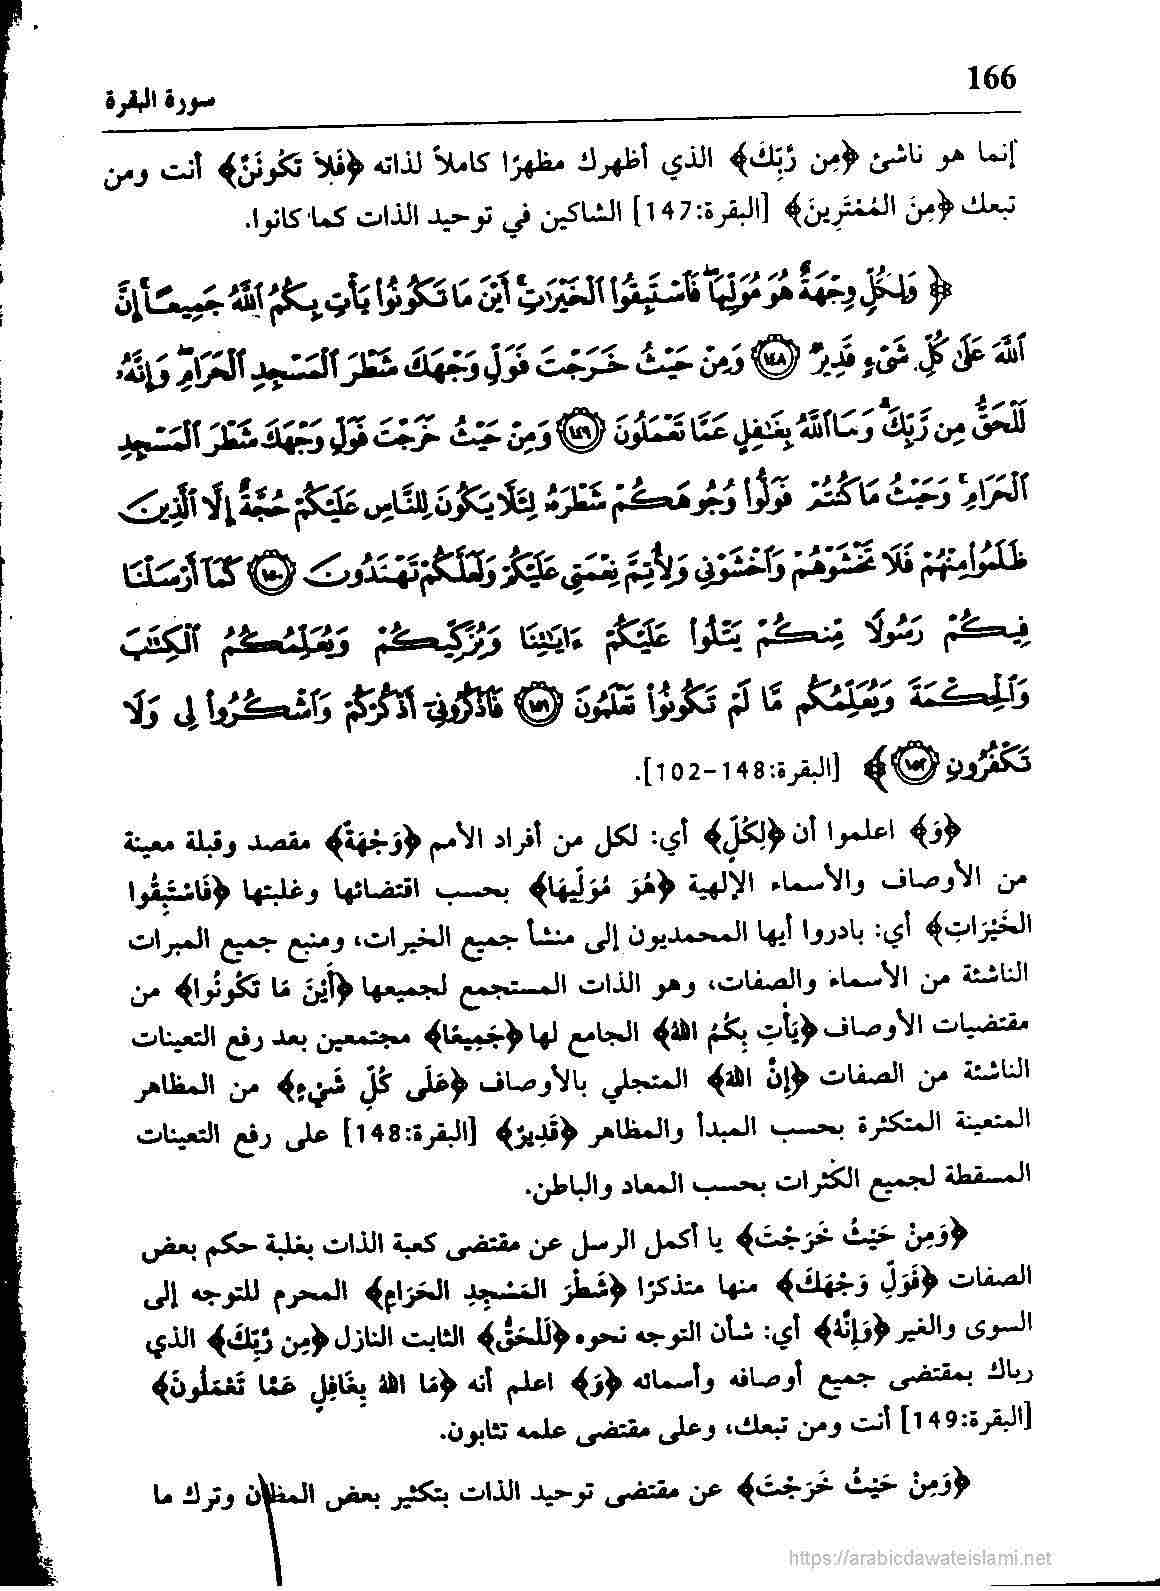 166
سورة البقرة
إنما هو ناشئ ﴿مِن رَّبِّكَ﴾ الذي أظهرك مظهرًا كاملاً لذاته ﴿فَلاَ تَكُونَنَّ﴾ أنت ومن
تبعك ﴿مِنَ المُمْتَرِينَ﴾ [البقرة:147] الشاكين في توحيد الذات كما كانوا.
﴿ وَلِكُلٍّ وِجْهَةٌ هُوَ مُوَلِّيهَا ۖ فَاسْتَبِقُوا الْخَيْرَاتِ ۚ أَيْنَ مَا تَكُونُوا يَأْتِ بِكُمُ اللَّهُ جَمِيعًا ۚ إِنَّ
اللَّهَ عَلَىٰ كُلِّ شَيْءٍ قَدِيرٌ ۝١٤٨ وَمِنْ حَيْثُ خَرَجْتَ فَوَلِّ وَجْهَكَ شَطْرَ الْمَسْجِدِ الْحَرَامِ ۖ وَإِنَّهُ
لَلْحَقُّ مِن رَّبِّكَ ۗ وَمَا اللَّهُ بِغَافِلٍ عَمَّا تَعْمَلُونَ ۝١٤٩ وَمِنْ حَيْثُ خَرَجْتَ فَوَلِّ وَجْهَكَ شَطْرَ الْمَسْجِدِ
الْحَرَامِ ۚ وَحَيْثُ مَا كُنتُمْ فَوَلُّوا وُجُوهَكُمْ شَطْرَهُ لِئَلَّا يَكُونَ لِلنَّاسِ عَلَيْكُمْ حُجَّةٌ إِلَّا الَّذِينَ
ظَلَمُوا مِنْهُمْ فَلَا تَخْشَوْهُمْ وَاخْشَوْنِي وَلِأُتِمَّ نِعْمَتِي عَلَيْكُمْ وَلَعَلَّكُمْ تَهْتَدُونَ ۝١٥٠ كَمَا أَرْسَلْنَا
فِيكُمْ رَسُولًا مِّنكُمْ يَتْلُوا عَلَيْكُمْ ءَايَاتِنَا وَيُزَكِّيكُمْ وَيُعَلِّمُكُمُ الْكِتَابَ
وَالْحِكْمَةَ وَيُعَلِّمُكُم مَّا لَمْ تَكُونُوا تَعْلَمُونَ ۝١٥١ فَاذْكُرُونِي أَذْكُرْكُمْ وَاشْكُرُوا لِي وَلَا
تَكْفُرُونِ ۝١٥٢ ﴾ [البقرة:148-102].
﴿وَ﴾ اعلموا أن ﴿لِكُلٍّ﴾ أي: لكل من أفراد الأمم ﴿وَجْهَةٌ﴾ مقصد وقبلة معينة
من الأوصاف والأسماء الإلهية ﴿هُوَ مُوَلِّيهَا﴾ بحسب اقتضائها وغلبتها ﴿فَاسْتَبِقُوا
الخَيْرَاتِ﴾ أي: بادروا أيها المحمديون إلى منشأ جميع الخيرات، ومنبع جميع المبرات
الناشئة من الأسماء والصفات، وهو الذات المستجمع لجميعها ﴿أَيْنَ مَا تَكُونُوا﴾ من
مقتضيات الأوصاف ﴿يَأْتِ بِكُمُ اللهُ﴾ الجامع لها ﴿جَمِيعًا﴾ مجتمعين بعد رفع التعينات
الناشئة من الصفات ﴿إِنَّ اللهَ﴾ المتجلي بالأوصاف ﴿عَلَى كُلِّ شَيْءٍ﴾ من المظاهر
المتعينة المتكثرة بحسب المبدأ والمظاهر ﴿قَدِيرٌ﴾ [البقرة:148] على رفع التعينات
المسقطة لجميع الكثرات بحسب المعاد والباطن.
﴿وَمِنْ حَيْثُ خَرَجْتَ﴾ يا أكمل الرسل عن مقتضى كعبة الذات بغلبة حكم بعض
الصفات ﴿فَوَلِّ وَجْهَكَ﴾ منها متذكرًا ﴿شَطْرَ المَسْجِدِ الحَرَامِ﴾ المحرم للتوجه إلى
السوى والغير ﴿وَإِنَّهُ﴾ أي: شأن التوجه نحوه ﴿لَلْحَقُّ﴾ الثابت النازل ﴿مِن رَّبِّكَ﴾ الذي
رباك بمقتضى جميع أوصافه وأسمائه ﴿وَ﴾ اعلم أنه ﴿مَا اللهُ بِغَافِلٍ عَمَّا تَعْمَلُونَ﴾
[البقرة:149] أنت ومن تبعك، وعلى مقتضى علمه تثابون.
﴿وَمِنْ حَيْثُ خَرَجْتَ﴾ عن مقتضى توحيد الذات بتكثير بعض المظان وترك ما
https://arabicdawateislami.net